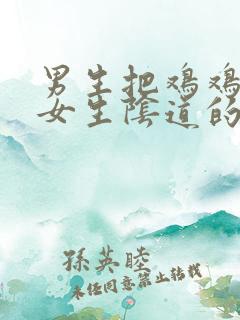 男生把鸡鸡
女生陰道的
孫英睦
未经同意禁止转载